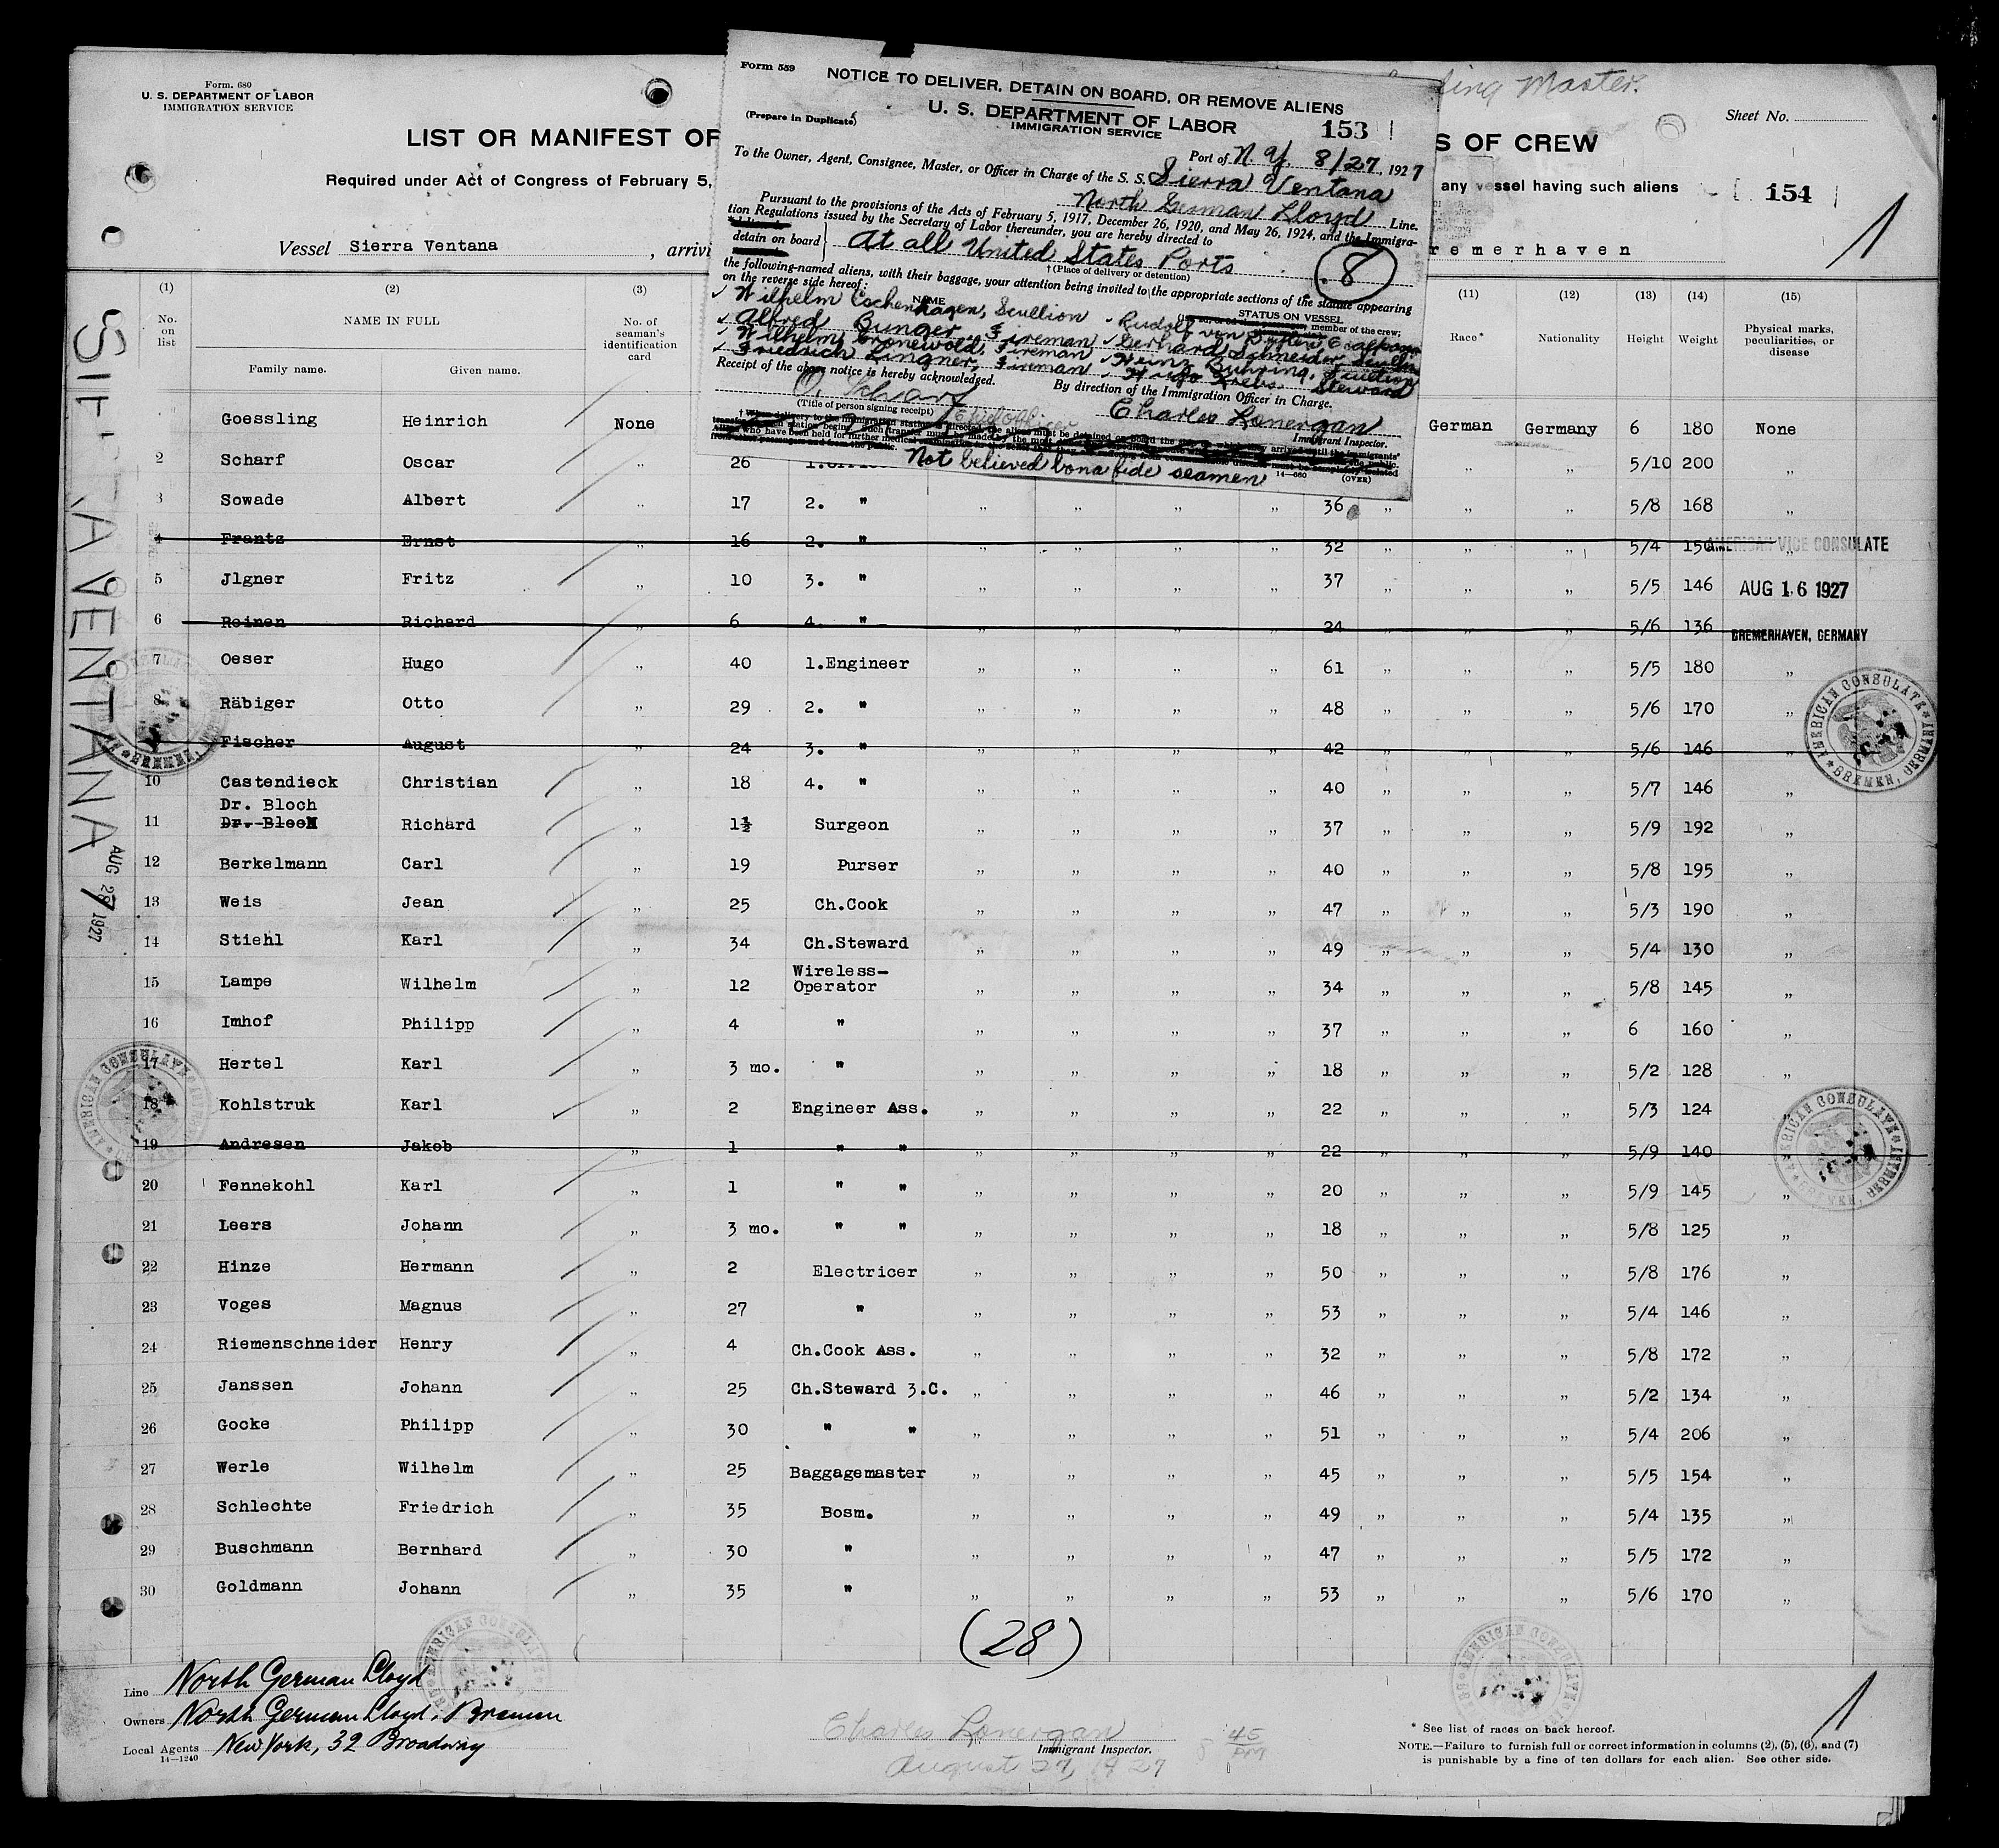 Form. 680
U. S. DEPARTMENT OF LABOR
IMMIGRATION SERVICE
LIST OR MANIFEST OF
S OF CREW
Required under Act of Congress of February 5,
any vessel having such aliens
Sheet No.
154
Vessel Sierra Ventana , arrivi
remerhaven
ing Master.
1
Form 559
NOTICE TO DELIVER, DETAIN ON BOARD, OR REMOVE ALIENS
(Prepare in Duplicate)
U. S. DEPARTMENT OF LABOR
IMMIGRATION SERVICE
153
Port of N. Y. 8/27, 1927
To the Owner, Agent, Consignee, Master, or Officer in Charge of the S. S. Sierra Ventana
North German Lloyd Line.
Pursuant to the provisions of the Acts of February 5, 1917, December 26, 1920, and May 26, 1924, and the Immigra-
tion Regulations issued by the Secretary of Labor thereunder, you are hereby directed to
detain on board At all United States Ports
† (Place of delivery or detention)
8
the following-named aliens, with their baggage, your attention being invited to the appropriate sections of the statute appearing
on the reverse side hereof:
NAME
STATUS ON VESSEL
member of the crew;
Wilhelm Eschenhagen, Scullion Rudolf von
Alfred Bunger, Fireman Gerhard Schneider
Wilhelm Gronewold, Fireman Heinz Buhring, Scullion
Friedrich Lingner, Fireman Hugo Krebs. Steward
Receipt of the above notice is hereby acknowledged.
By direction of the Immigration Officer in Charge.
O. Scharf
(Title of person signing receipt)
Charles Lonergan
Immigrant Inspector.
Not believed bona fide seamen
14—660
(OVER)
(1) (2) (3) (11) (12) (13) (14) (15)
No. on list
NAME IN FULL
Family name. Given name.
No. of seaman's identification card
Race* Nationality Height Weight Physical marks, peculiarities, or disease
Goessling Heinrich None German Germany 6 180 None
2 Scharf Oscar „ 26 „ „ 5/10 200 „
3 Sowade Albert „ 17 2. " „ „ „ „ 36 „ „ „ 5/8 168 „
4 Frantz Ernst „ 16 2. " „ „ „ „ 32 „ „ „ 5/4 150 „
AMERICAN VICE CONSULATE
5 Jlgner Fritz „ 10 3. " „ „ „ „ 37 „ „ „ 5/5 146
AUG 16 1927
6 Reinen Richard „ 6 4. " „ „ „ „ 24 „ „ „ 5/6 136
BREMERHAVEN, GERMANY
7 Oeser Hugo „ 40 1.Engineer „ „ „ „ 61 „ „ „ 5/5 180 „
8 Räbiger Otto „ 29 2. " „ „ „ „ 48 „ „ „ 5/6 170 „
Fischer August „ 24 3. " „ „ „ „ 42 „ „ „ 5/6 146 „
10 Castendieck Christian „ 18 4. " „ „ „ „ 40 „ „ „ 5/7 146 „
Dr. Bloch
11 Richard „ 1½ Surgeon „ „ „ „ 37 „ „ „ 5/9 192 „
12 Berkelmann Carl „ 19 Purser „ „ „ „ 40 „ „ „ 5/8 195 „
13 Weis Jean „ 25 Ch.Cook „ „ „ „ 47 „ „ „ 5/3 190 „
14 Stiehl Karl „ 34 Ch.Steward „ „ „ „ 49 „ „ „ 5/4 130 „
15 Lampe Wilhelm „ 12 Wireless-Operator „ „ „ „ 34 „ „ „ 5/8 145 „
16 Imhof Philipp „ 4 " „ „ „ „ 37 „ „ „ 6 160 „
17 Hertel Karl „ 3 mo. " „ „ „ „ 18 „ „ „ 5/2 128 „
18 Kohlstruk Karl „ 2 Engineer Ass. „ „ „ „ 22 „ „ „ 5/3 124 „
19 Andresen Jakob „ 1 " " „ „ „ „ 22 „ „ „ 5/9 140
20 Fennekohl Karl „ 1 " " „ „ „ „ 20 „ „ „ 5/9 145 „
21 Leers Johann „ 3 mo. " " „ „ „ „ 18 „ „ „ 5/8 125 „
22 Hinze Hermann „ 2 Electricer „ „ „ „ 50 „ „ „ 5/8 176 „
23 Voges Magnus „ 27 " „ „ „ „ 53 „ „ „ 5/4 146 „
24 Riemenschneider Henry „ 4 Ch.Cook Ass. „ „ „ „ 32 „ „ „ 5/8 172 „
25 Janssen Johann „ 25 Ch.Steward 3.C. „ „ „ „ 46 „ „ „ 5/2 134 „
26 Gocke Philipp „ 30 " " „ „ „ „ 51 „ „ „ 5/4 206 „
27 Werle Wilhelm „ 25 Baggagemaster „ „ „ „ 45 „ „ „ 5/5 154 „
28 Schlechte Friedrich „ 35 Bosm. „ „ „ „ 49 „ „ „ 5/4 135 „
29 Buschmann Bernhard „ 30 " „ „ „ „ 47 „ „ „ 5/5 172 „
30 Goldmann Johann „ 35 " „ „ „ „ 53 „ „ „ 5/6 170 „
(28)
SIERRA VENTANA
AUG 1927
AMERICAN CONSULATE
BREMEN,
Line North German Lloyd
Owners North German Lloyd, Bremen
Local Agents New York, 32 Broadway
14—1240
Charles Lonergan
Immigrant Inspector.
August 27, 1927
45 PM
* See list of races on back hereof.
NOTE.—Failure to furnish full or correct information in columns (2), (5), (6), and (7)
is punishable by a fine of ten dollars for each alien. See other side.
1